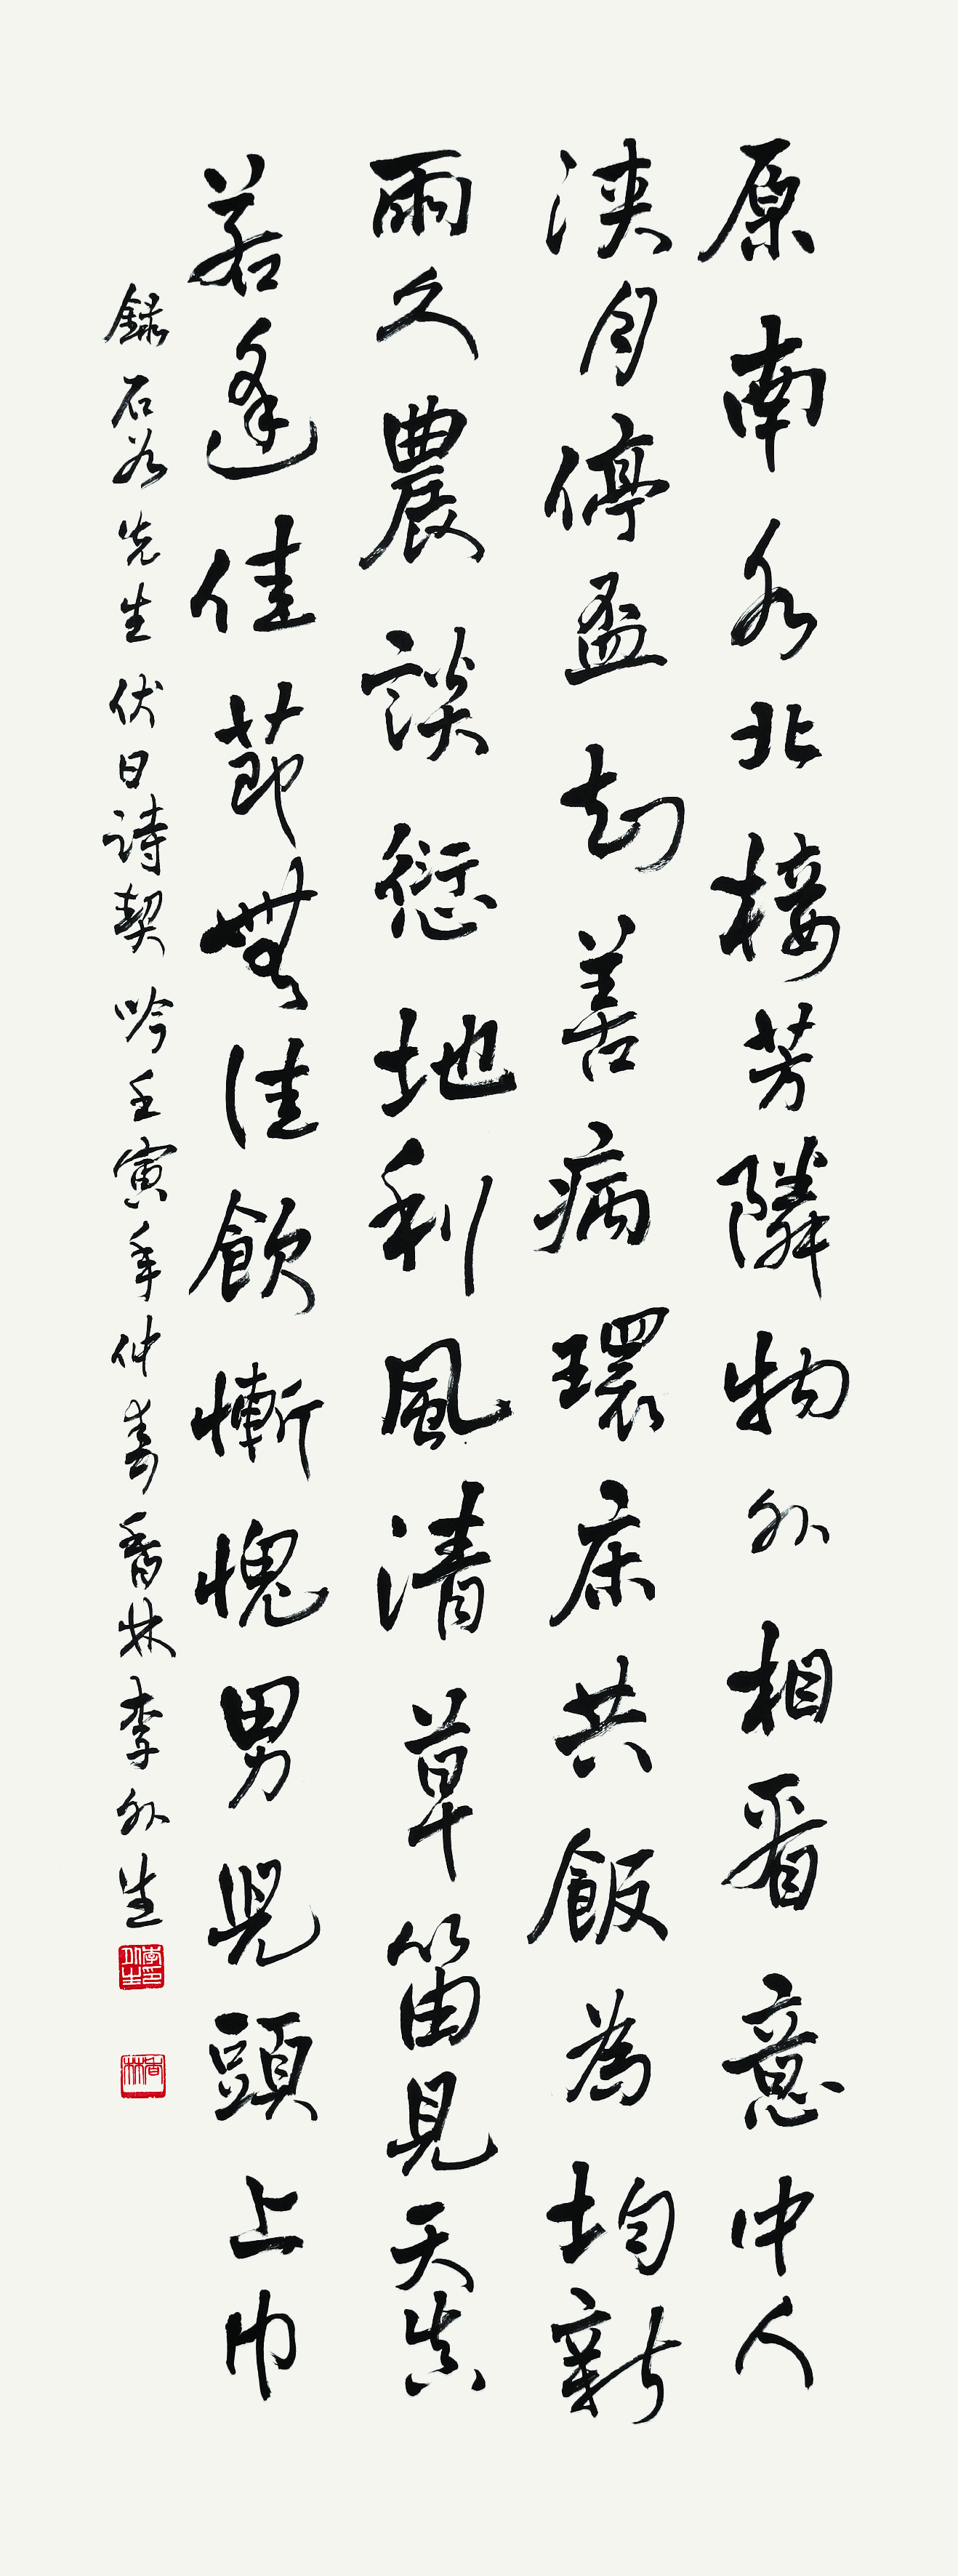 原南水北接芳隣物外相看意中人
浹月停盃知善病環床共飯為均新
雨久農談愆地利風清草笛見天真
若逢佳節無佳飲慚愧男兒頭上巾
錄石先生伏日詩契吟壬寅年仲春香林李外生
香林